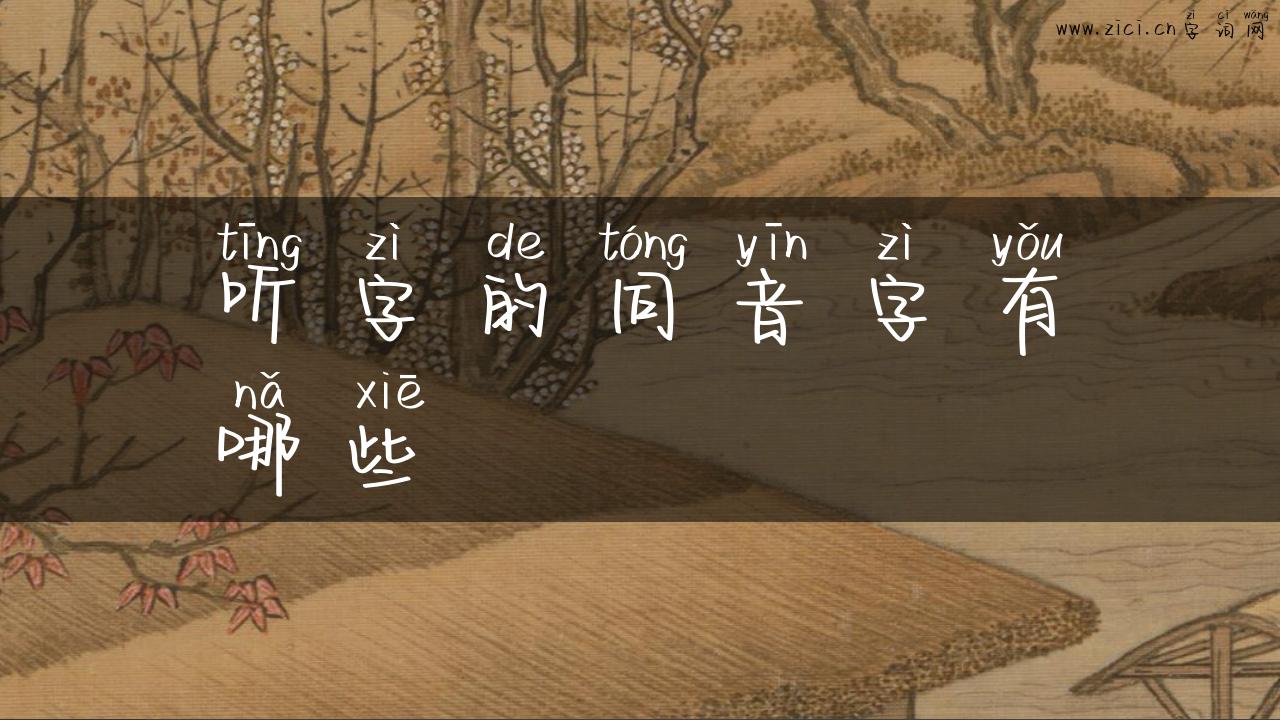 zì cí wǎng
www.zici.cn字词网
tīng zì de tóng yīn zì yǒu
听字的同音字有
nǎ xiē
哪些